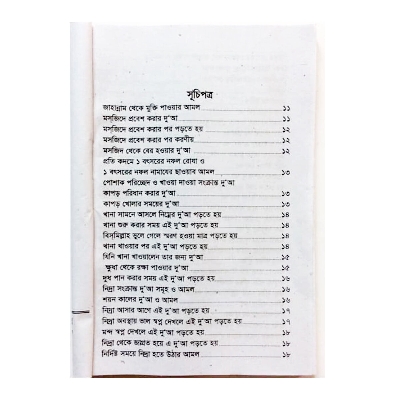 সূচিপত্র
জাহান্নাম থেকে মুক্তি পাওয়ার আমল ১১
মসজিদে প্রবেশ করার দু'আ ১১
মসজিদে প্রবেশ করার পর পড়তে হয় ১২
মসজিদে প্রবেশ করার পর করণীয় ১২
মসজিদ থেকে বের হওয়ার দু'আ ১২
প্রতি কদমে ১ বৎসরের নফল রোযা ও
১ বৎসরের নফল নামাযের ছাওয়াব আমল ১২
পোশাক পরিচ্ছেদ ও খাওয়া দাওয়া সংক্রান্ত দু'আ
কাপড় পরিধান করার দু'আ ১৩
কাপড় খোলার সময়ের দু'আ ১৩
খানা সামনে আসলে নিম্নের দু'আ পড়তে হয় ১৪
খানা শুরু করার সময় এই দু'আ পড়তে হয় ১৪
বিসমিল্লাহ ভুলে গেলে স্মরণ হওয়া মাত্র পড়তে হয় ১৪
খানা খাওয়ার পর এই দু'আ পড়তে হয় ১৪
যিনি খানা খাওয়ালেন তার জন্য দু'আ ১৫
ক্ষুধা থেকে রক্ষা পাওয়ার দু'আ ১৫
দুধ পান করার সময় এই দু'আ পড়তে হয় ১৬
নিদ্রা সংক্রান্ত দু'আ সমূহ ও আমল ১৬
শয়ন কালের দু'আ ও আমল ১৬
নিদ্রা আসার আগে এই দু'আ পড়তে হয় ১৭
নিদ্রা অবস্থায় ভাল স্বপ্ন দেখলে এই দু'আ পড়তে হয় ১৭
মন্দ স্বপ্ন দেখলে এই দু'আ পড়তে হয় ১৮
নিদ্রা থেকে জাগ্রত হয়ে এ দু'আ পড়তে হয় ১৮
নির্দিষ্ট সময়ে নিদ্রা হতে উঠার আমল ১৮